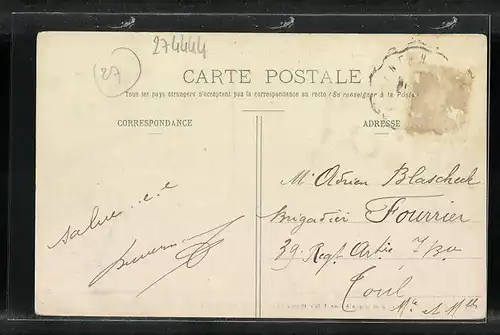 274444
27
CARTE POSTALE
Tous les pays étrangers n'acceptent pas la correspondance au recto (Se renseigner à la Poste)
CORRESPONDANCE
ADRESSE
Mr Adrien Blascheck
Brigadier Fourrier
39 Regt Artie 7/Bie
Toul
Mthe et Mlle
salue